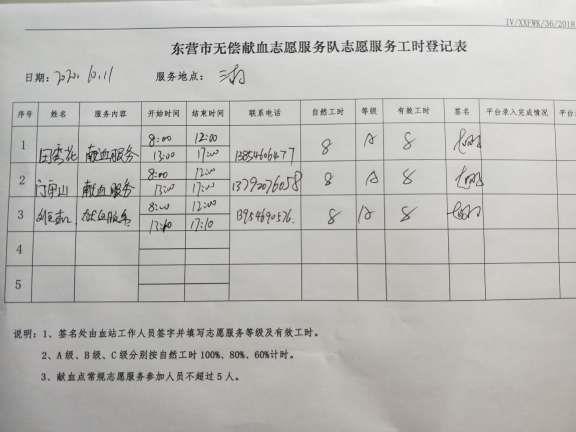 IV/XXFWK/36/2018
东营市无偿献血志愿服务队志愿服务工时登记表
日期：2020.10.11 服务地点：
序号 姓名 服务内容 开始时间 结束时间 联系电话 自然工时 等级 有效工时 签名 平台录入完成情况 平台录
8:00 12:00
1 田秀花 献血服务 13:00 17:00 8 A 8
8:00 12:00
2 献血服务 13:00 17:00 13792076058 8 A 8
8:00 12:00
3 献血服务 13:10 17:10 13954690576 8 A 8
4
5
说明：1、签名处由血站工作人员签字并填写志愿服务等级及有效工时。
2、A级、B级、C级分别按自然工时 100%、80%、60%计时。
3、献血点常规志愿服务参加人员不超过 5 人。